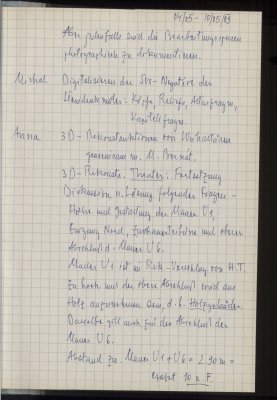 04/05 - 10/05/03
Aber jedenfalls sind die Bearbeitungsspuren
photographisch zu dokumentieren.
Michal Digitalisieren der SW-Negative der
Kleindenkmäler: Köpfe, Reliefs, Altarfragm.,
Kapitellfragm.
Anna 3D-Rekonstruktionen von Wichaltär
gemeinsam m. M. Bernát.
3D-Rekonstr. Theater: Fortsetzung
Diskussion u. Lösung folgender Fragen -
Höhe und Gestaltung der Mauer U1,
Eingang Nord, und oberer
Abschluß d. Mauer U6.
Mauer U1 ist im Rek.-Vorschlag von H.T.
zu hoch und der obere Abschluß wird aus
Holz anzunehmen sein, d.h. Holzgeländer.
Dasselbe gilt auch für den Abschluß der
Mauer U6.
Abstand zw. Mauer U1 + U6 = 2,90 m =
exakt 10 r. F.